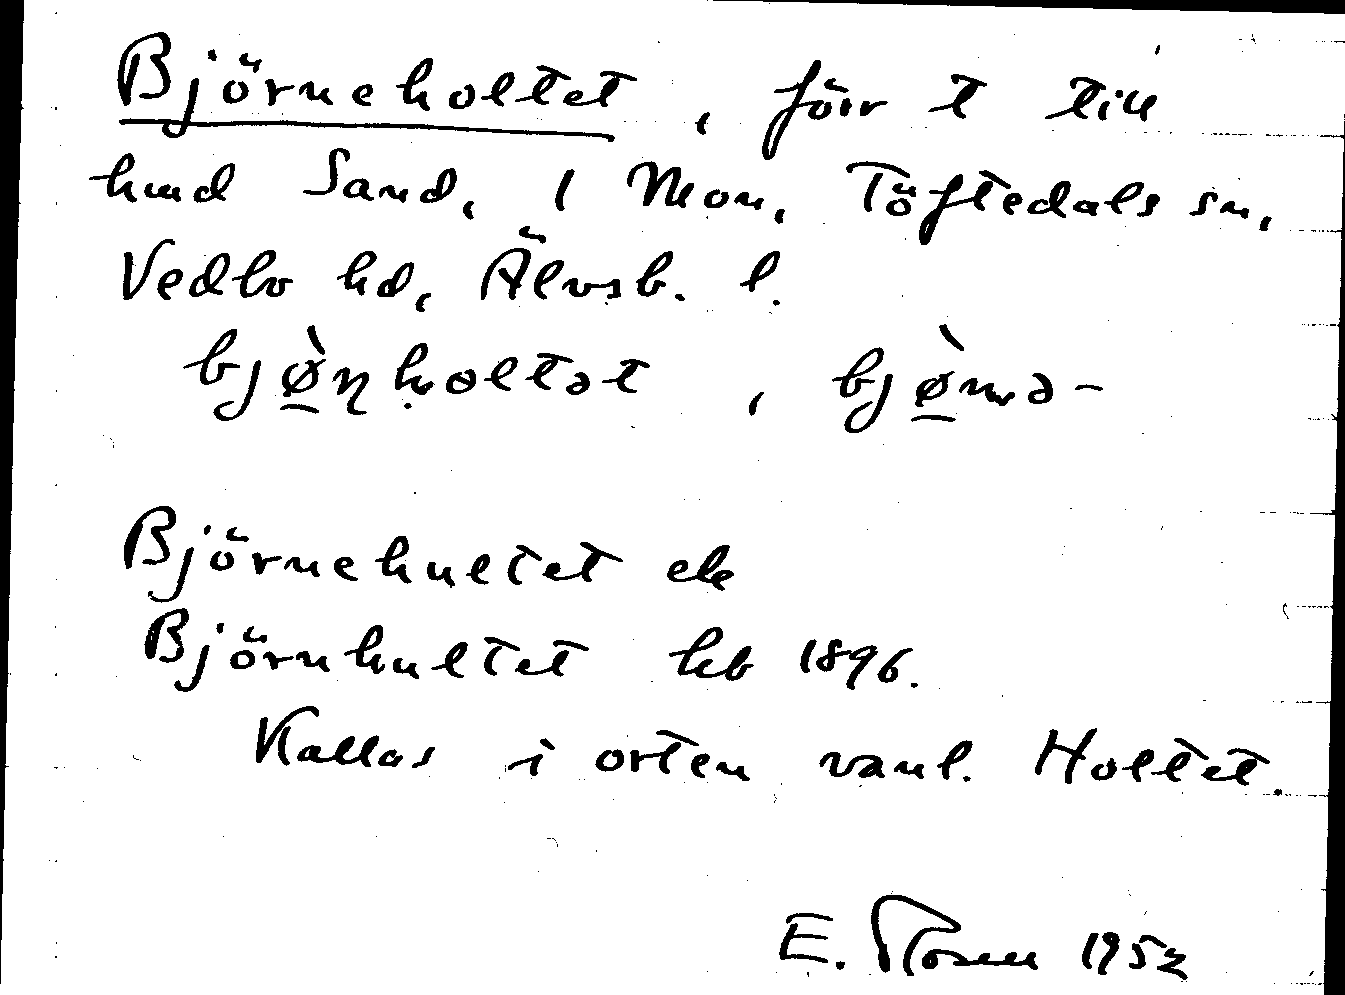 Björneholtet, förr t till
hmd Sand, 1 Mon, Töftedals sn,
Vedbo hd, Älvsb. l.
bjø̀ṇholtət, bjø̀nə-
Björnehultet el
Björnhultet hb 1896.
Kallas i orten vanl. Holtet.
E. Rosen 1952